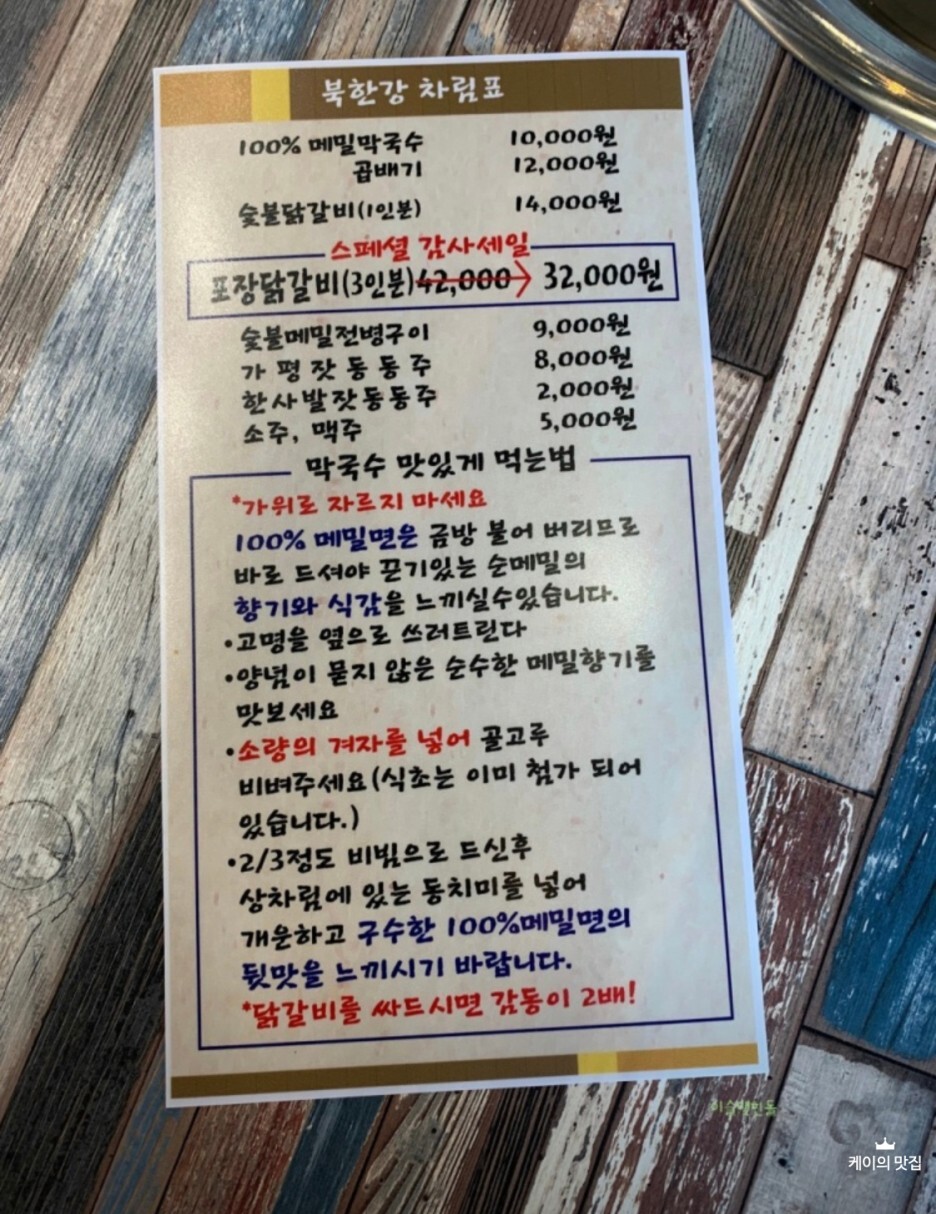 북한강 차림표
100% 메밀막국수 10,000원
곱배기 12,000원
숯불닭갈비(1인분) 14,000원
스페셜 감사세일
포장닭갈비(3인분) 42,000 → 32,000원
숯불메밀전병구이 9,000원
가 평 잣 동 동 주 8,000원
한사발잣동동주 2,000원
소주, 맥주 5,000원
막국수 맛있게 먹는법
*가위로 자르지 마세요
100% 메밀면은 금방 불어 버리므로
바로 드셔야 끈기있는 순메밀의
향기와 식감을 느끼실수있습니다.
•고명을 옆으로 쓰러트린다
•양념이 묻지 않은 순수한 메밀향기를
맛보세요
•소량의 겨자를 넣어 골고루
비벼주세요(식초는 이미 첨가 되어
있습니다.)
•2/3정도 비빔으로 드신후
상차림에 있는 동치미를 넣어
개운하고 구수한 100%메밀면의
뒷맛을 느끼시기 바랍니다.
*닭갈비를 싸드시면 감동이 2배!
케이의 맛집